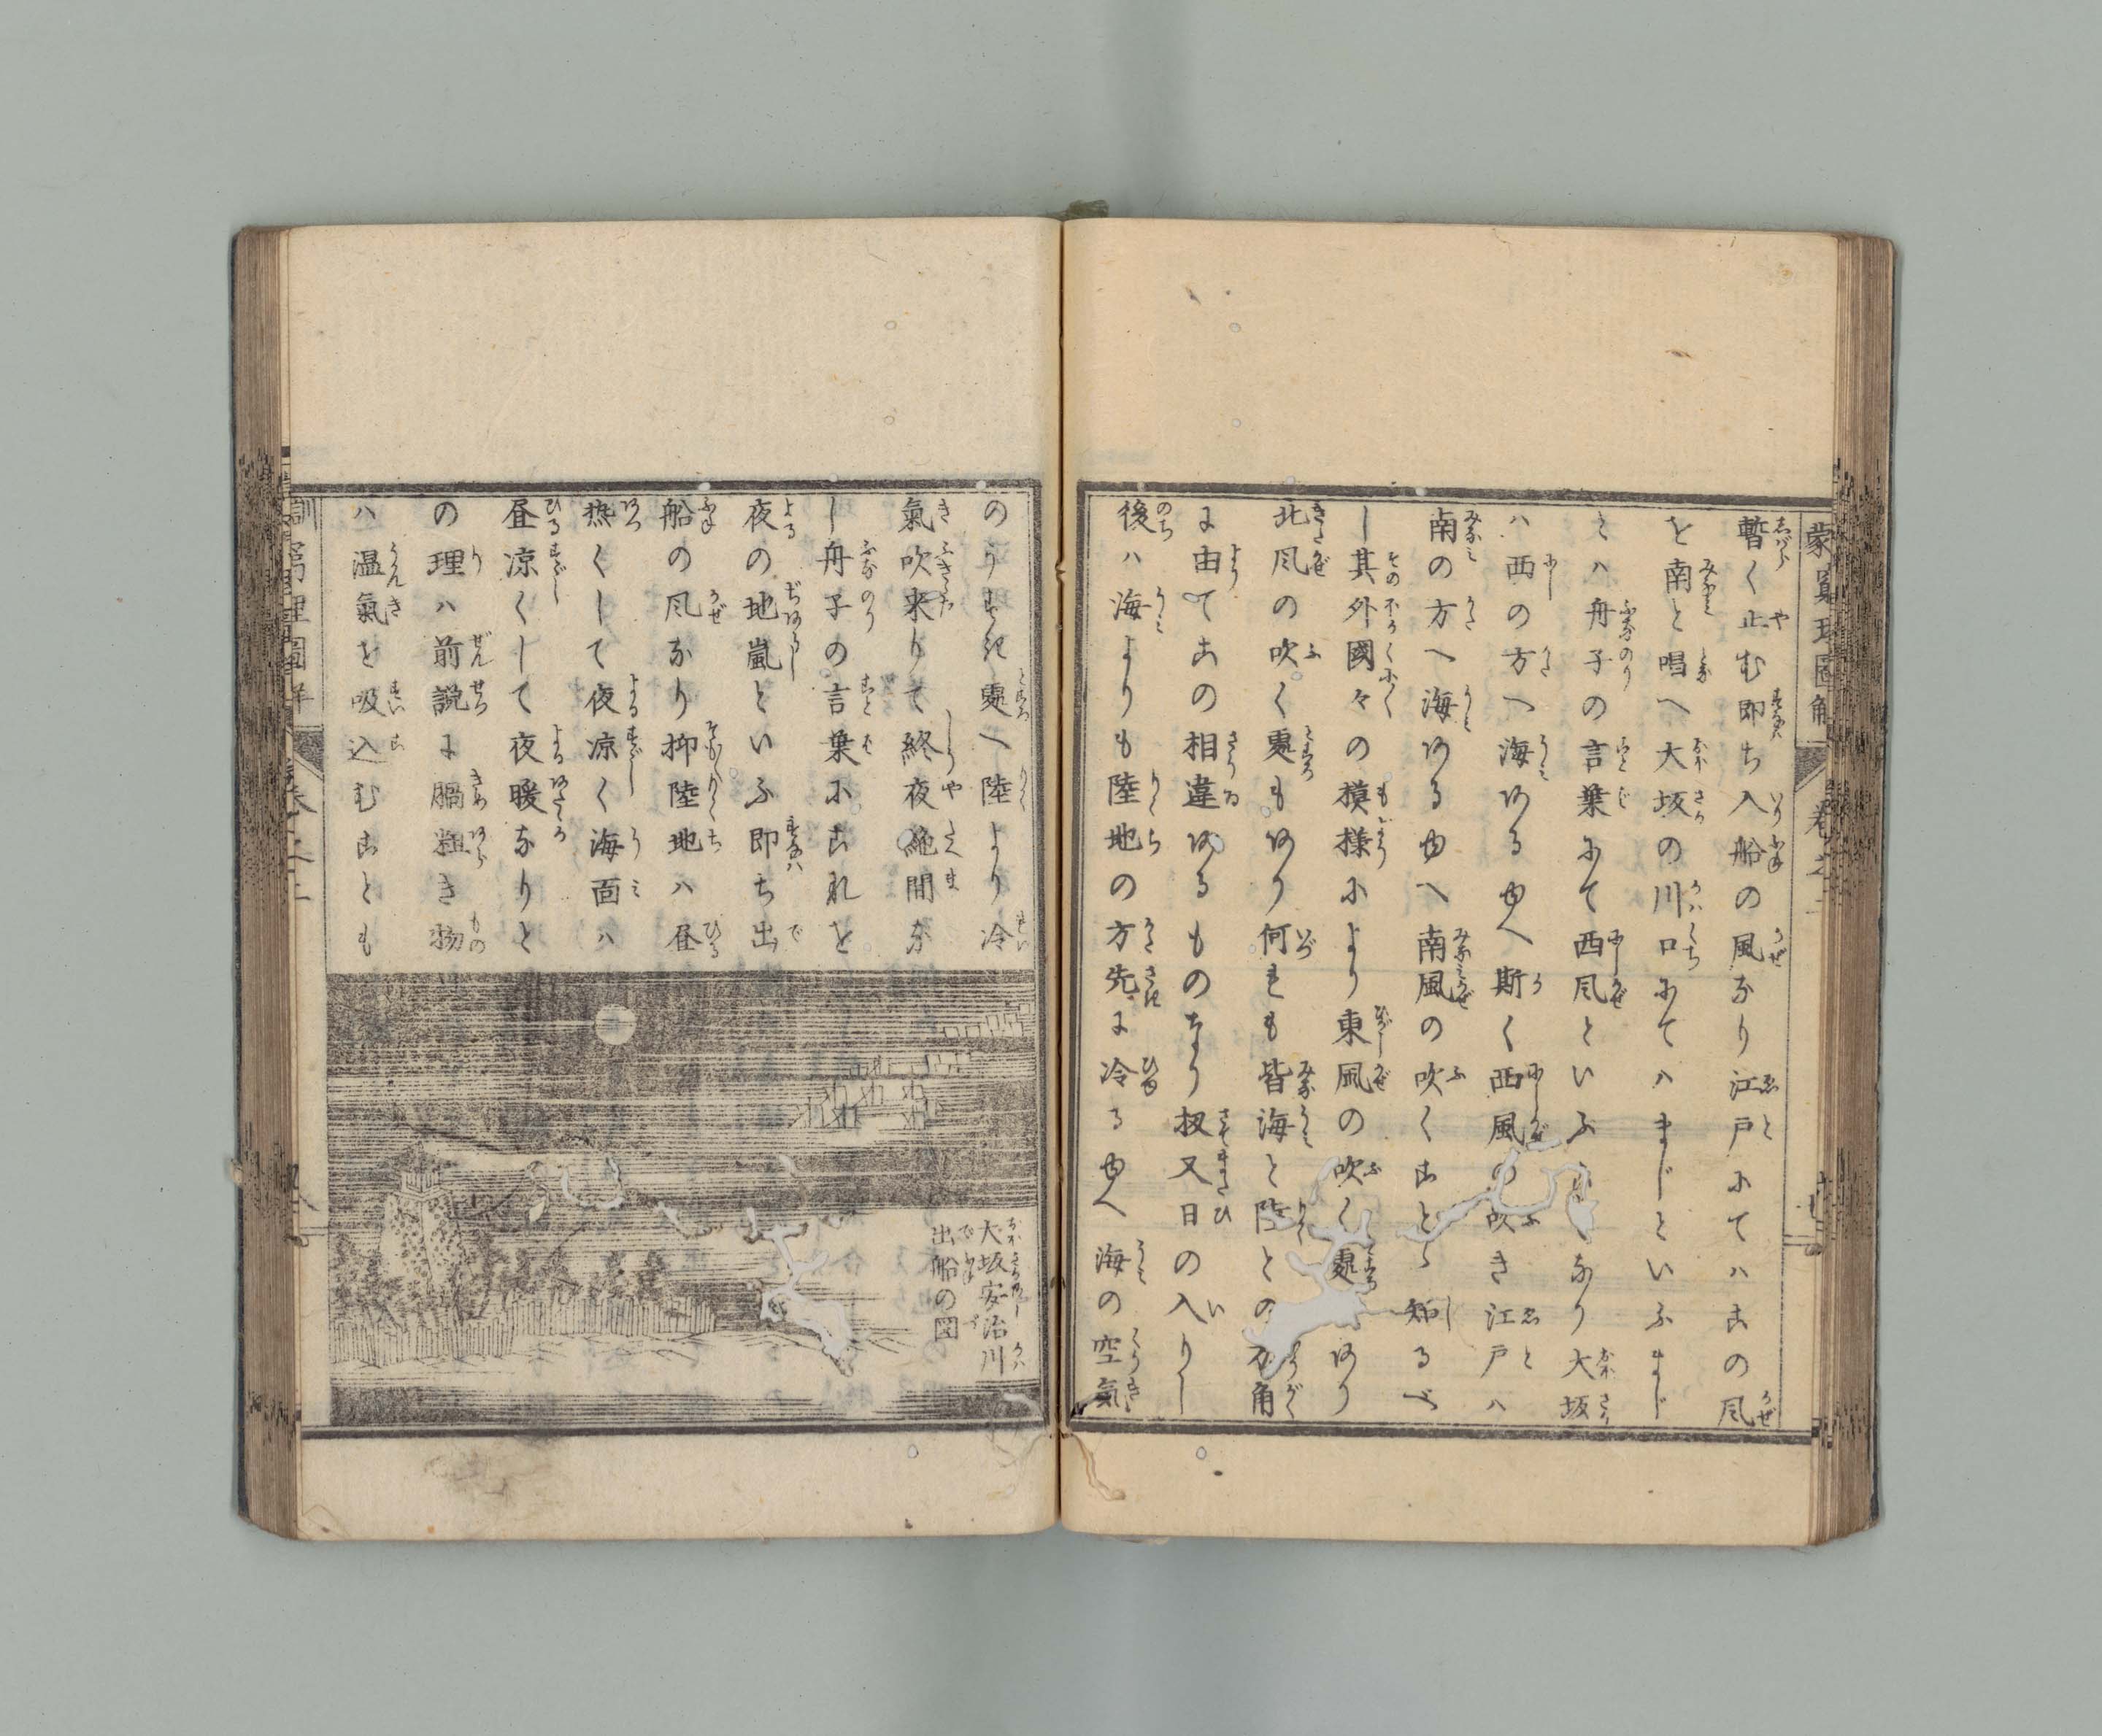 蒙窮理圖解
暫く止む即ち入船の風なり江戸にてハこの風
を南と唱へ大坂の川口にてハまじといふまじ
とハ舟子の言葉にて西風といふなり大坂
ハ西の方へ海ある由へ斯く西風の吹き江戸ハ
南の方へ海ある由へ南風の吹くことゝ知るべ
し其外國々の模様により東風の吹く處あり
北風の吹く處もあり何れも皆海と陸との方角
に由てこの相違あるものなり扨又日の入りし
後ハ海よりも陸地の方先に冷る由へ海の空氣
のうすき處へ陸より冷
氣吹来りて終夜絶間な
し舟子の言葉にこれを
夜の地嵐といふ即ち出
船の風なり抑陸地ハ昼
熱くして夜凉く海面ハ
昼凉くして夜暖なりと
の理ハ前説に膈粗き物
ハ温氣を吸込むことも
大坂安治川
出船の図